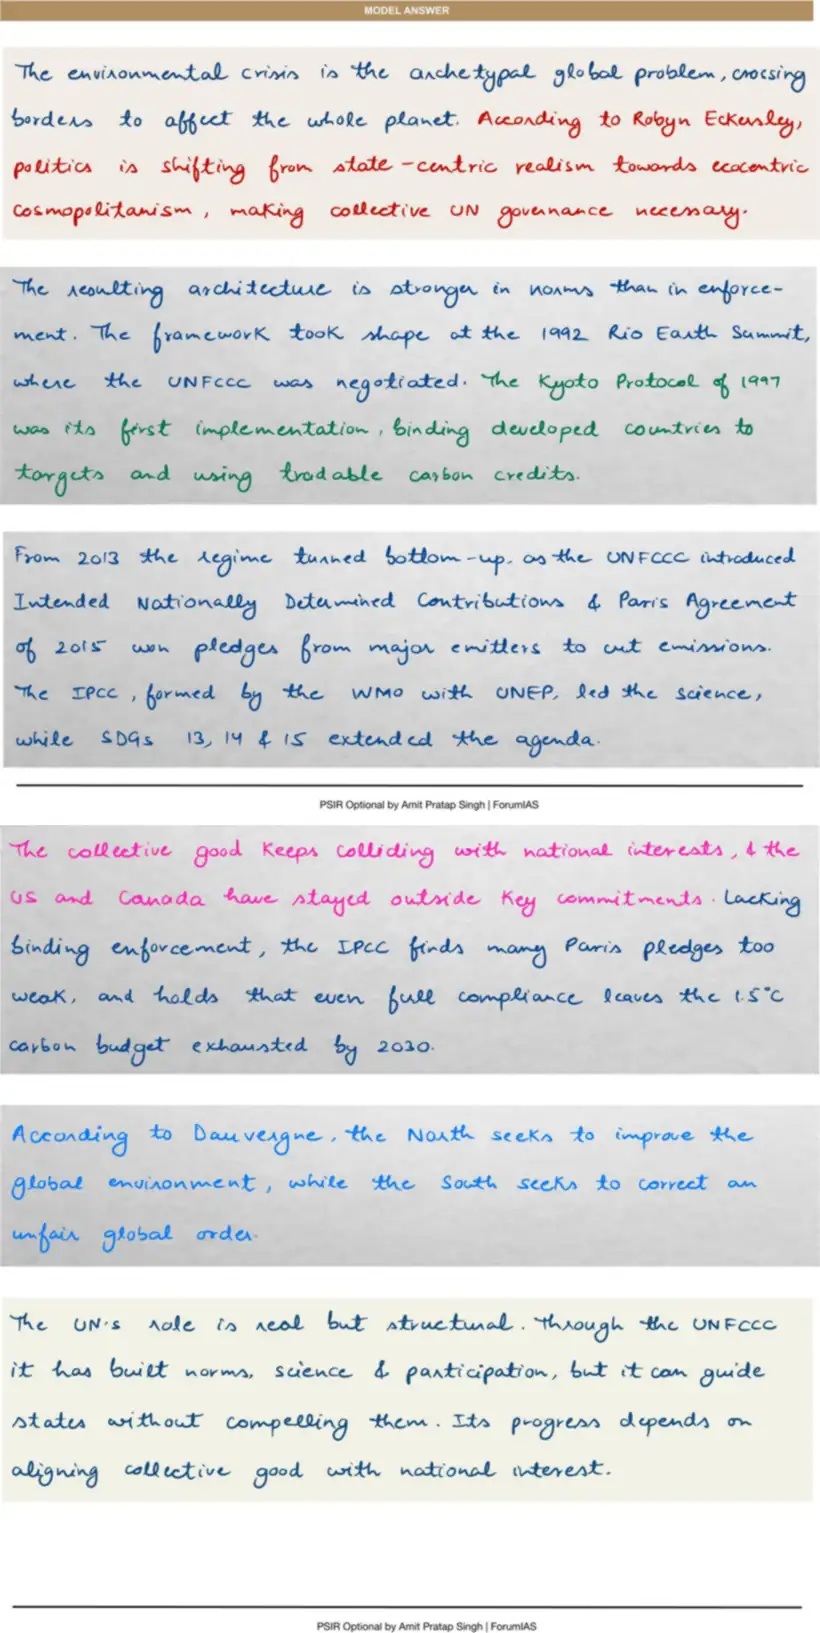 MODEL ANSWER
The environmental crisis is the archetypal global problem, crossing
borders to affect the whole planet. According to Robyn Eckersley,
politics is shifting from state-centric realism towards ecocentric
cosmopolitanism, making collective UN governance necessary.
The resulting architecture is stronger in norms than in enforce-
ment. The framework took shape at the 1992 Rio Earth Summit,
where the UNFCCC was negotiated. The Kyoto Protocol of 1997
was its first implementation, binding developed countries to
targets and using tradable carbon credits.
From 2013 the regime turned bottom-up, as the UNFCCC introduced
Intended Nationally Determined Contributions & Paris Agreement
of 2015 won pledges from major emitters to cut emissions.
The IPCC, formed by the WMO with UNEP, led the science,
while SDGs 13, 14 & 15 extended the agenda.
PSIR Optional by Amit Pratap Singh | ForumIAS
The collective good keeps colliding with national interests, & the
US and Canada have stayed outside key commitments. Lacking
binding enforcement, the IPCC finds many Paris pledges too
weak, and holds that even full compliance leaves the 1.5°C
carbon budget exhausted by 2030.
According to Dauvergne, the North seeks to improve the
global environment, while the South seeks to correct an
unfair global order.
The UN's role is real but structural. Through the UNFCCC
it has built norms, science & participation, but it can guide
states without compelling them. Its progress depends on
aligning collective good with national interest.
PSIR Optional by Amit Pratap Singh | ForumIAS